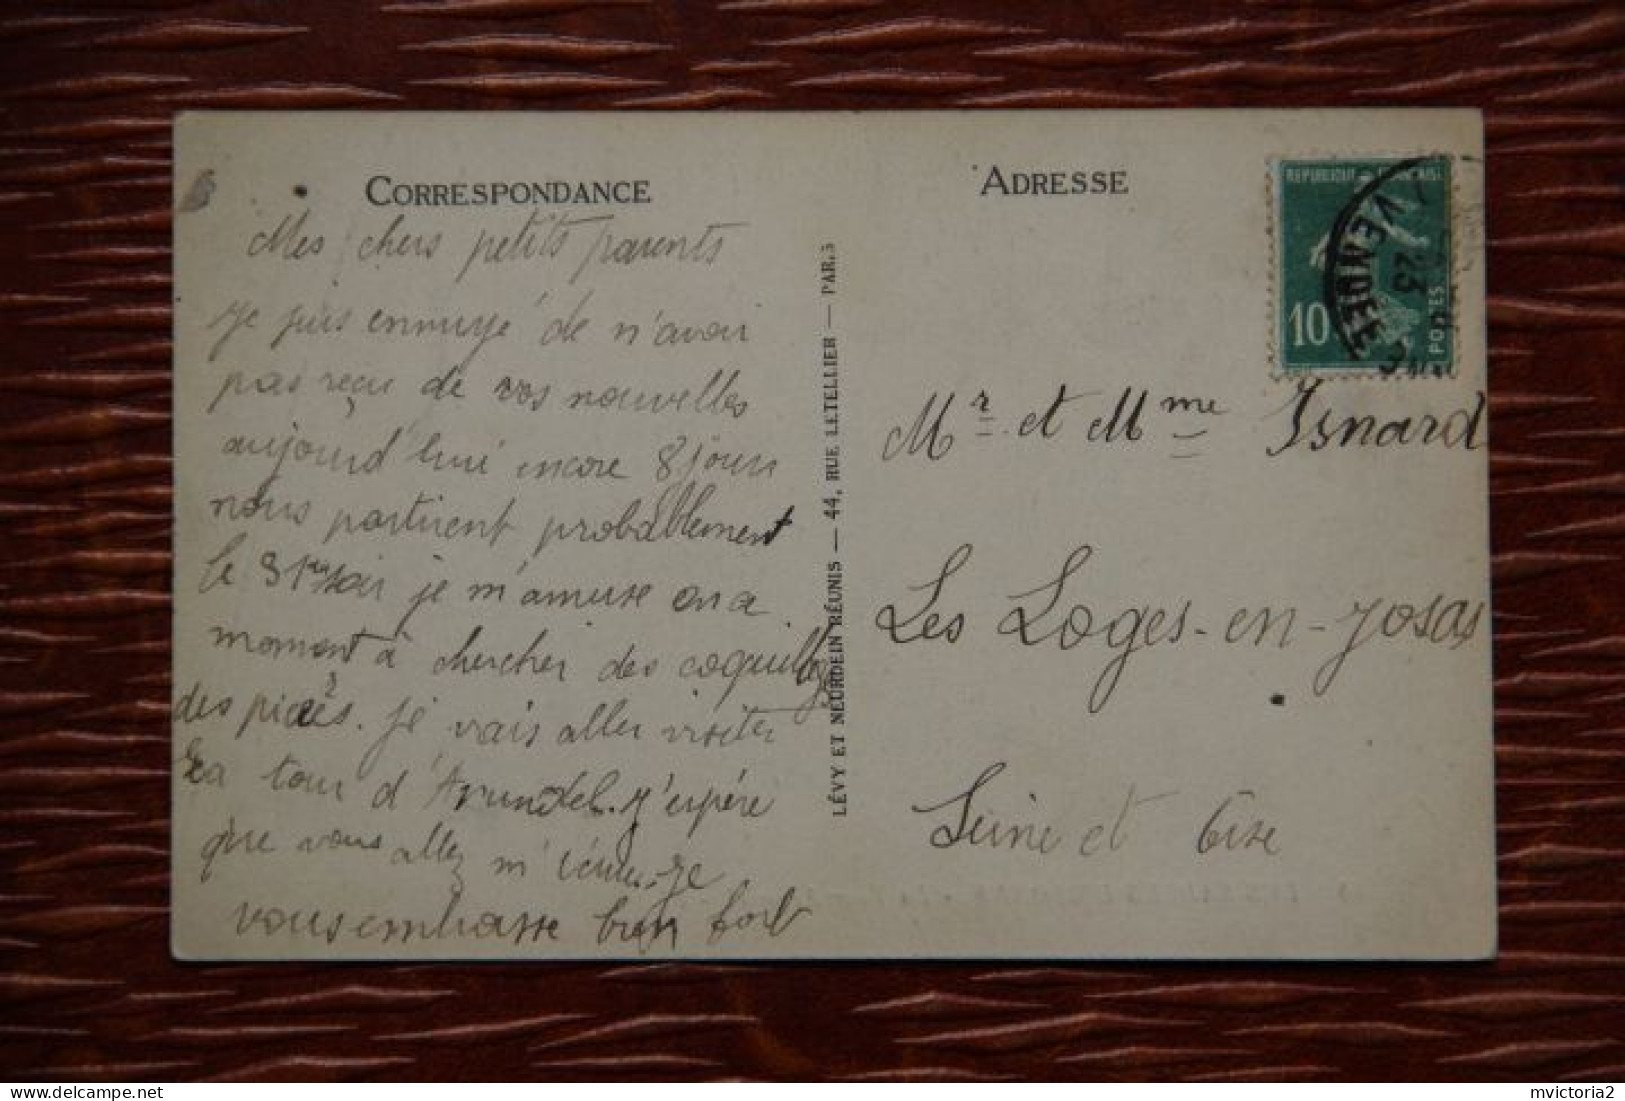 CORRESPONDANCE
Mes chers petits parents
je suis ennuyé de n'avoir
pas reçu de vos nouvelles
aujourd'hui encore 8 jours
nous partirent probablement
le 31 soir je m'amuse on a
moment à chercher des coquillages
des pieces. Je vais aller visiter
La tour d'Arundel. J'espére
que vous allez m'écrire. Je
vous embrasse bien fort
LÉVY ET NEURDEIN RÉUNIS — 44, RUE LETELLIER — PARIS
ADRESSE
REPUBLIQUE FRANÇAISE
10
POSTES
VENDEE
23
Mr et Mme Isnard
Les Loges-en-Josas
Seine et Oise
mvictoria2